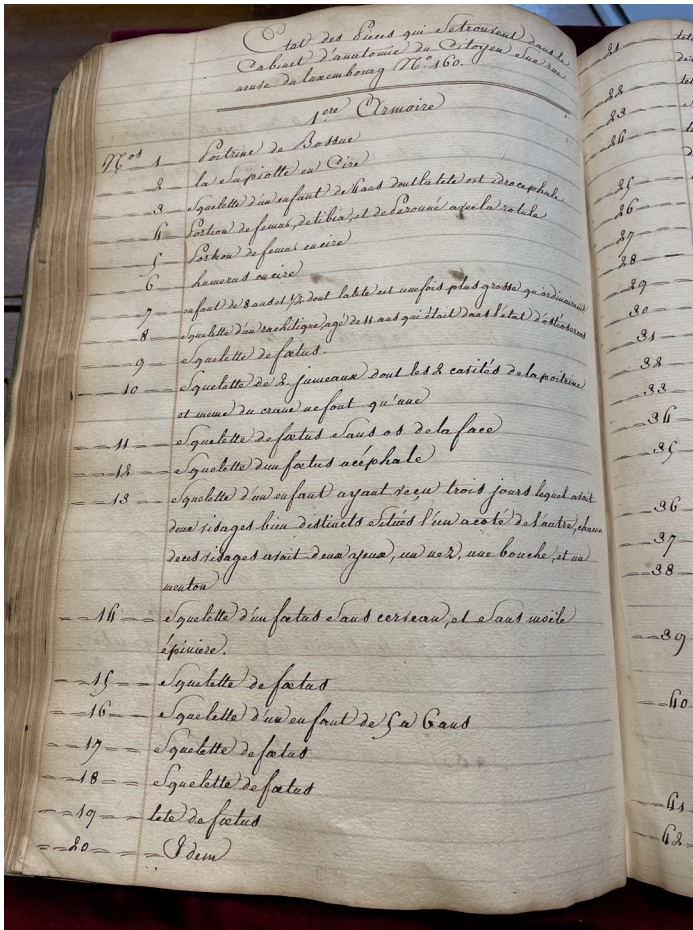 Etat des Pieces qui se trouvent dans le
Cabinet d'anatomie du Citoyen Sue rue
neuve du luxembourg N.° 160.
1ere Armoire
Nos 1 Poitrine de Bossue
2 la Supiotte en Cire
3 Squelette d'un enfant de 6 ans dont la tete est idrocephale
4 Portion de femur, de tibia, et de Peronné avec la rotule
5 Portion de femur en cire
6 humerus en cire
7 enfant de 8 ans et 1/2 dont la tete est une fois plus grosse qu'ordinairement
8 Squelette d'un rachitique, agé de 11 ans qui était dans l'état d'ostéosarcos
9 Squelette de fœtus.
10 Squelette de 2 jumeaux dont les 2 cavités de la poitrine
et meme du crane ne font qu'une
11 Squelette de fœtus sans os de la face
12 Squelette d'un fœtus acéphale
13 Squelette d'un enfant ayant vecu trois jours lequel avait
deux visages bien distincts situés l'un a coté de l'autre, chacun
de ces visages avait deux yeux, un nez, une bouche, et un
menton
14 Squelette d'un fœtus sans cerveau, et sans moële
épiniere.
15 Squelette de fœtus
16 Squelette d'un enfant de 5 a 6 ans
17 Squelette de fœtus
18 Squelette de fœtus
19 tete de fœtus
20 Idem
21 tete
22
23
24
25
26
27
28
29
30
31
32
33
34
35
36
37
38
39
40
41
42